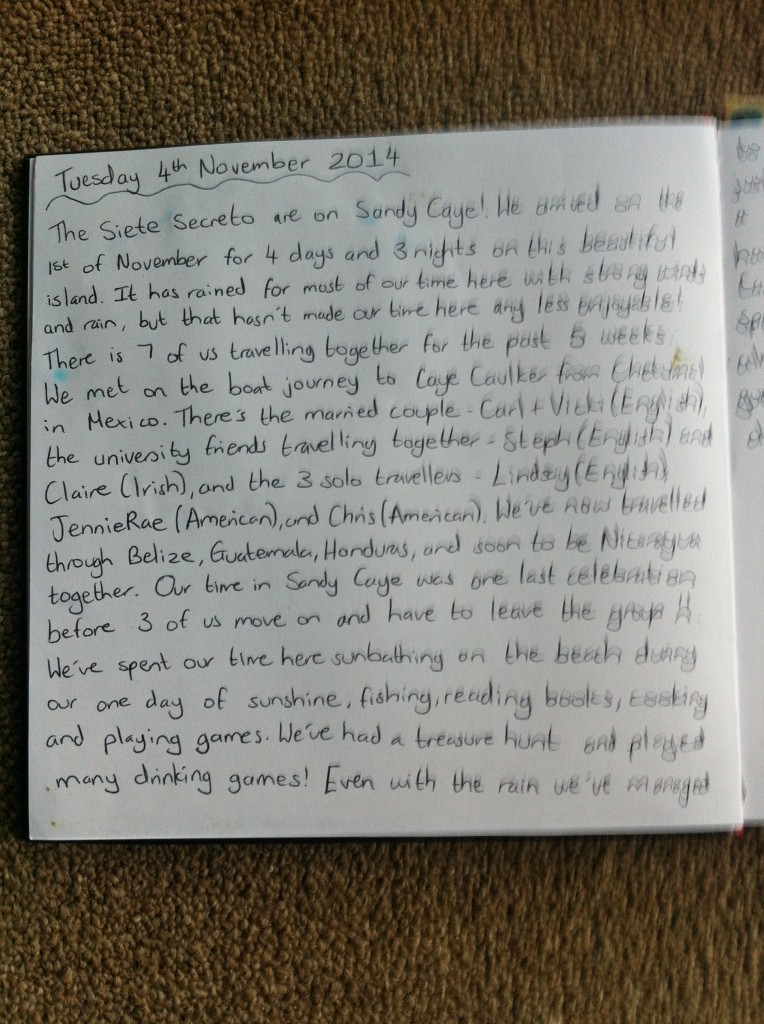 Tuesday 4th November 2014
The Siete Secreto are on Sandy Caye! We arrived on the
1st of November for 4 days and 3 nights on this beautiful
island. It has rained for most of our time here with strong winds
and rain, but that hasn't made our time here any less enjoyable!
There is 7 of us travelling together for the past 5 weeks.
We met on the boat journey to Caye Caulker from Chetumal
in Mexico. There's the married couple - Carl + Vicki (English),
the university friends travelling together - Steph (English) and
Claire (Irish), and the 3 solo travellers - Lindsay (English),
JennieRae (American), and Chris (American). We've now travelled
through Belize, Guatemala, Honduras, and soon to be Nicaragua
together. Our time in Sandy Caye was one last celebration
before 3 of us move on and have to leave the group
We've spent our time here sunbathing on the beach during
our one day of sunshine, fishing, reading books, cooking
and playing games. We've had a treasure hunt and played
many drinking games! Even with the rain we've managed